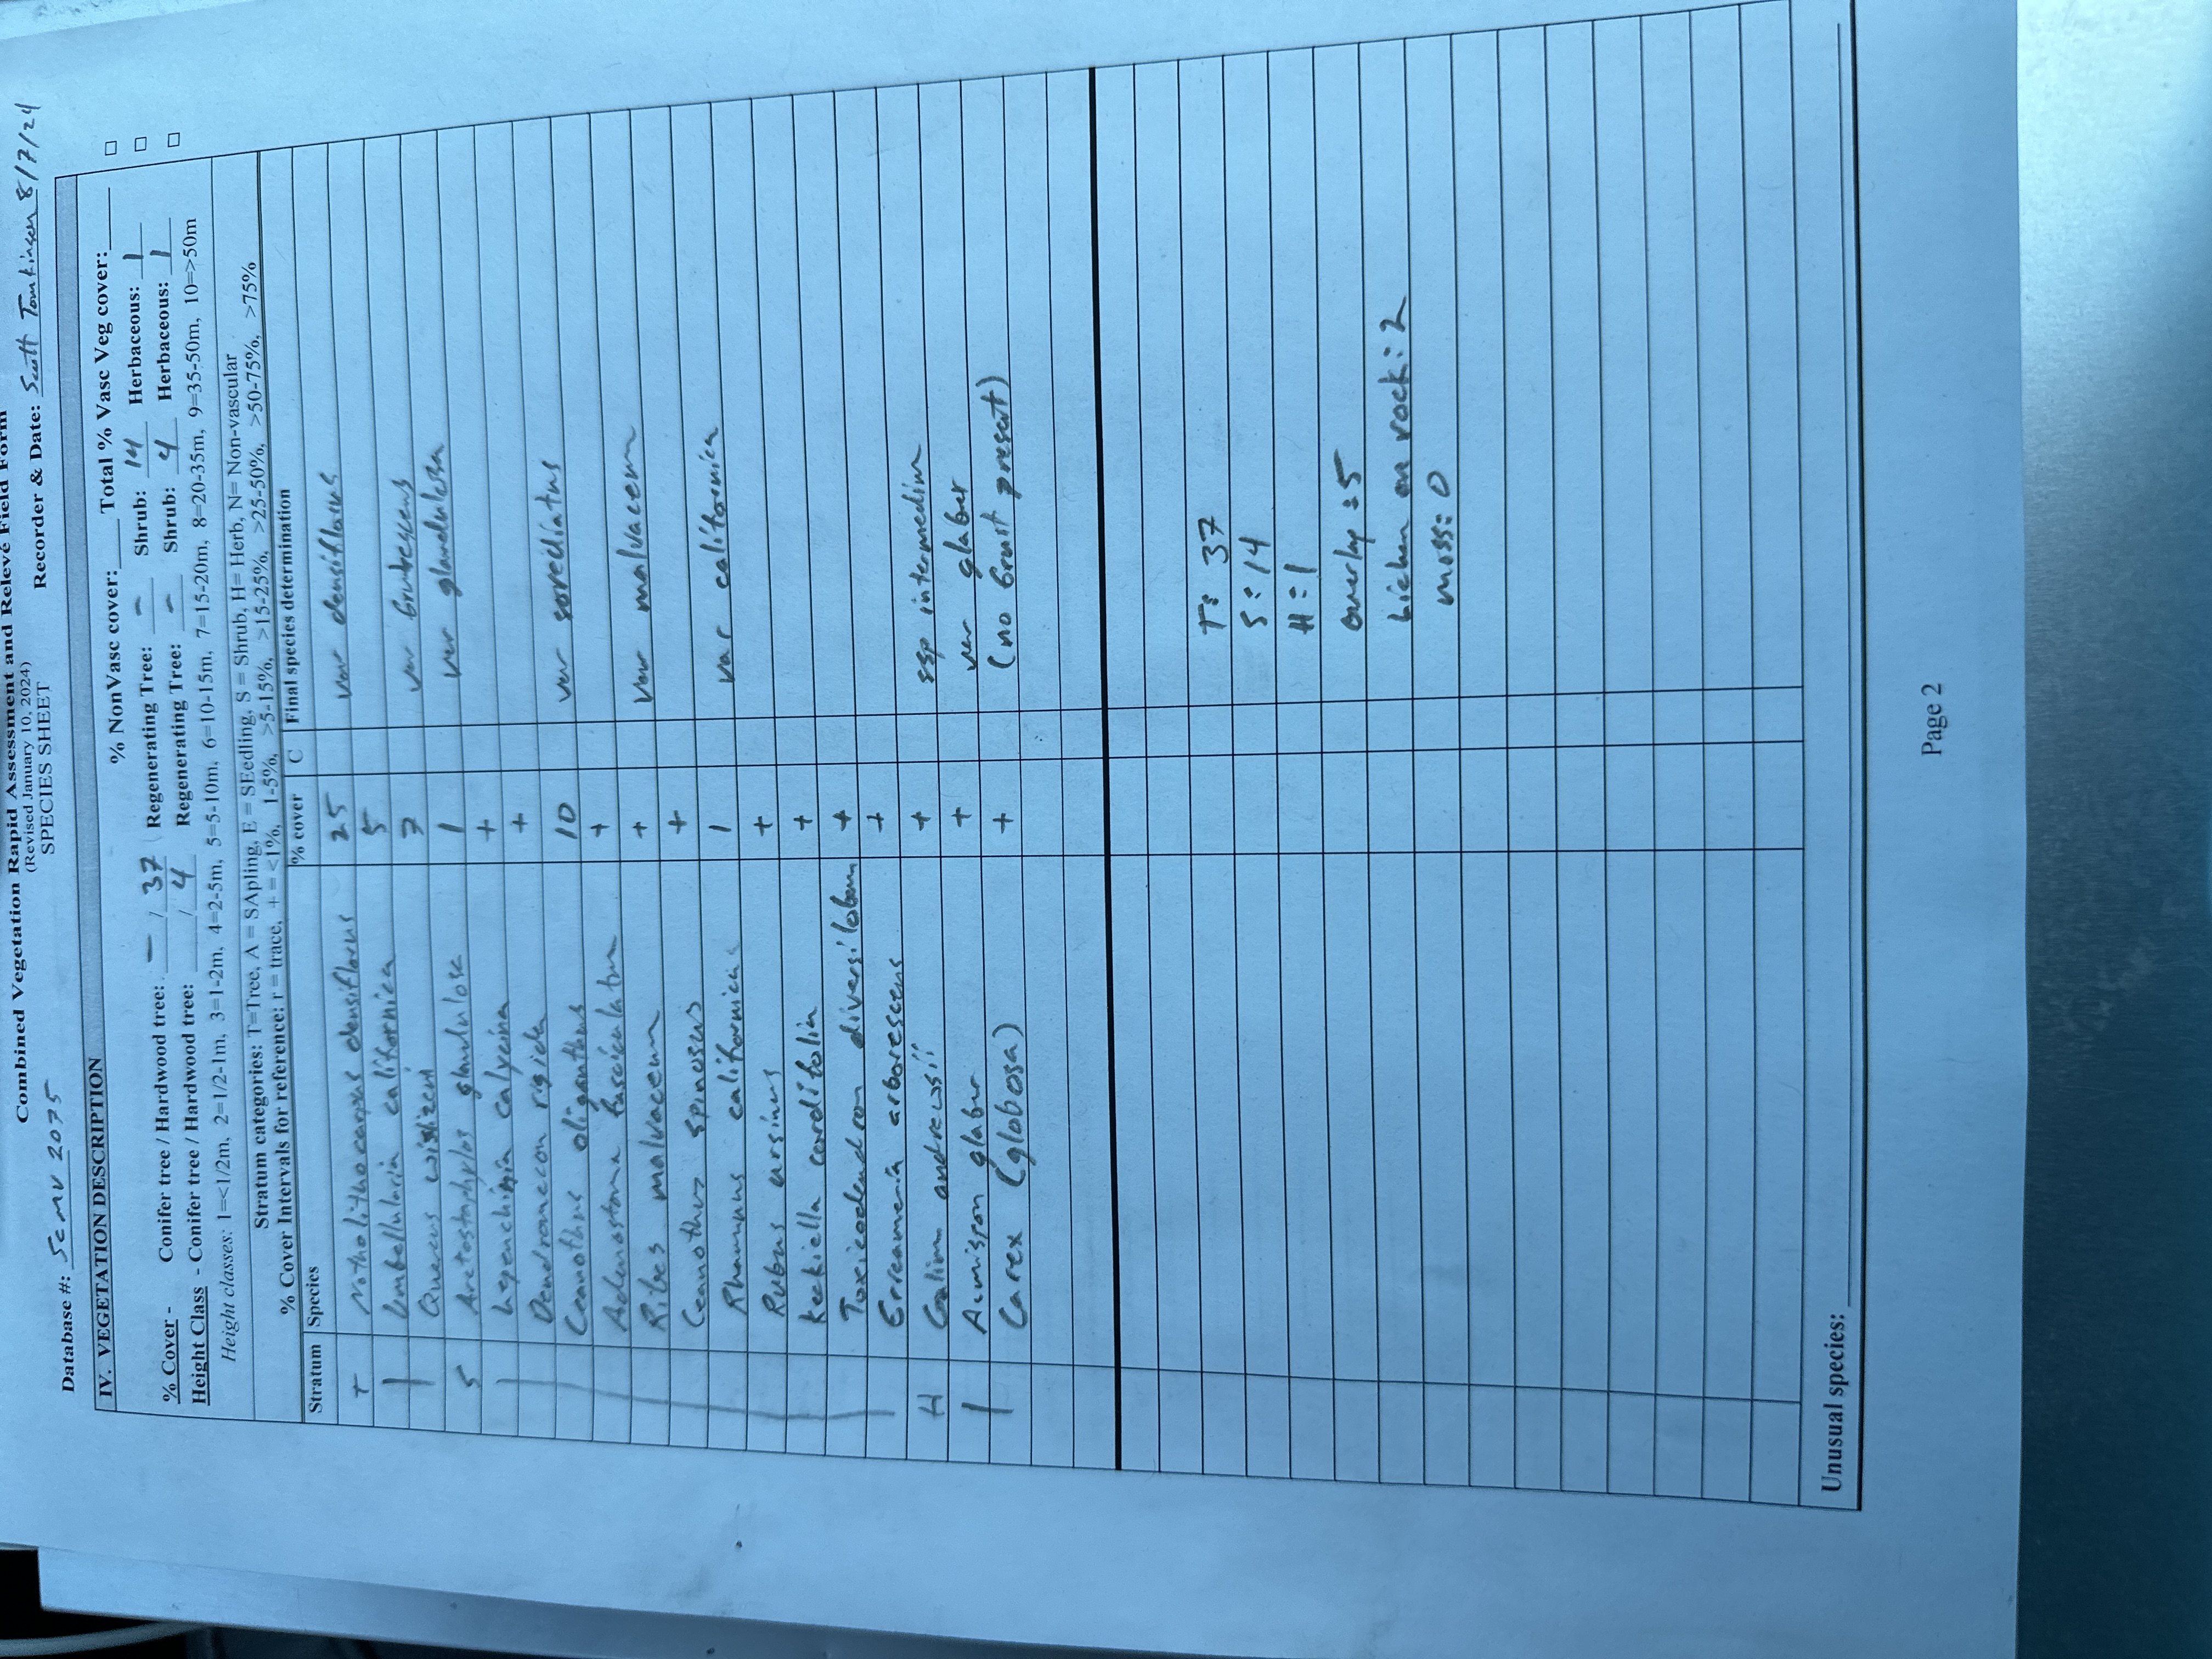 Combined Vegetation Rapid Assessment and Relevé Field Form
(Revised January 10, 2024)
SPECIES SHEET
Database #: SCMV 2075 Recorder & Date: Scott Tomkinson 8/7/24
IV. VEGETATION DESCRIPTION
% NonVasc cover: Total % Vasc Veg cover:
% Cover - Conifer tree / Hardwood tree: - / 37 Regenerating Tree: - Shrub: 14 Herbaceous: 1
Height Class - Conifer tree / Hardwood tree: / 4 Regenerating Tree: - Shrub: 4 Herbaceous: 1
Height classes: 1=<1/2m, 2=1/2-1m, 3=1-2m, 4=2-5m, 5=5-10m, 6=10-15m, 7=15-20m, 8=20-35m, 9=35-50m, 10=>50m
Stratum categories: T=Tree, A = SApling, E = SEedling, S = Shrub, H= Herb, N= Non-vascular
% Cover Intervals for reference: r = trace, + = <1%, 1-5%, >5-15%, >15-25%, >25-50%, >50-75%, >75%
Stratum Species % cover C Final species determination
T Notholithocarpus densiflorus 25 var densiflorus
| Umbellularia californica 5
| Quercus wislizeni 7 var frutescens
S Arctostaphylos glandulosa 1 var glandulosa
Lepechinia calycina +
Dendromecon rigida +
Ceanothus oliganthus 10 var sorediatus
Adenostoma fasciculatum +
Ribes malvaceum + var malvaceum
Ceanothus spinosus +
Rhamnus californica 1 var californica
Rubus ursinus +
Keckiella cordifolia +
Toxicodendron diversilobum +
Erreamenia arborescens +
H Galium andrewsii + ssp intermedium
| Acmispon glaber + var glaber
Carex (globosa) + (no fruit present)
T: 37
S: 14
H: 1
overlap: 5
Lichen on rock: 2
moss: 0
Unusual species:
Page 2